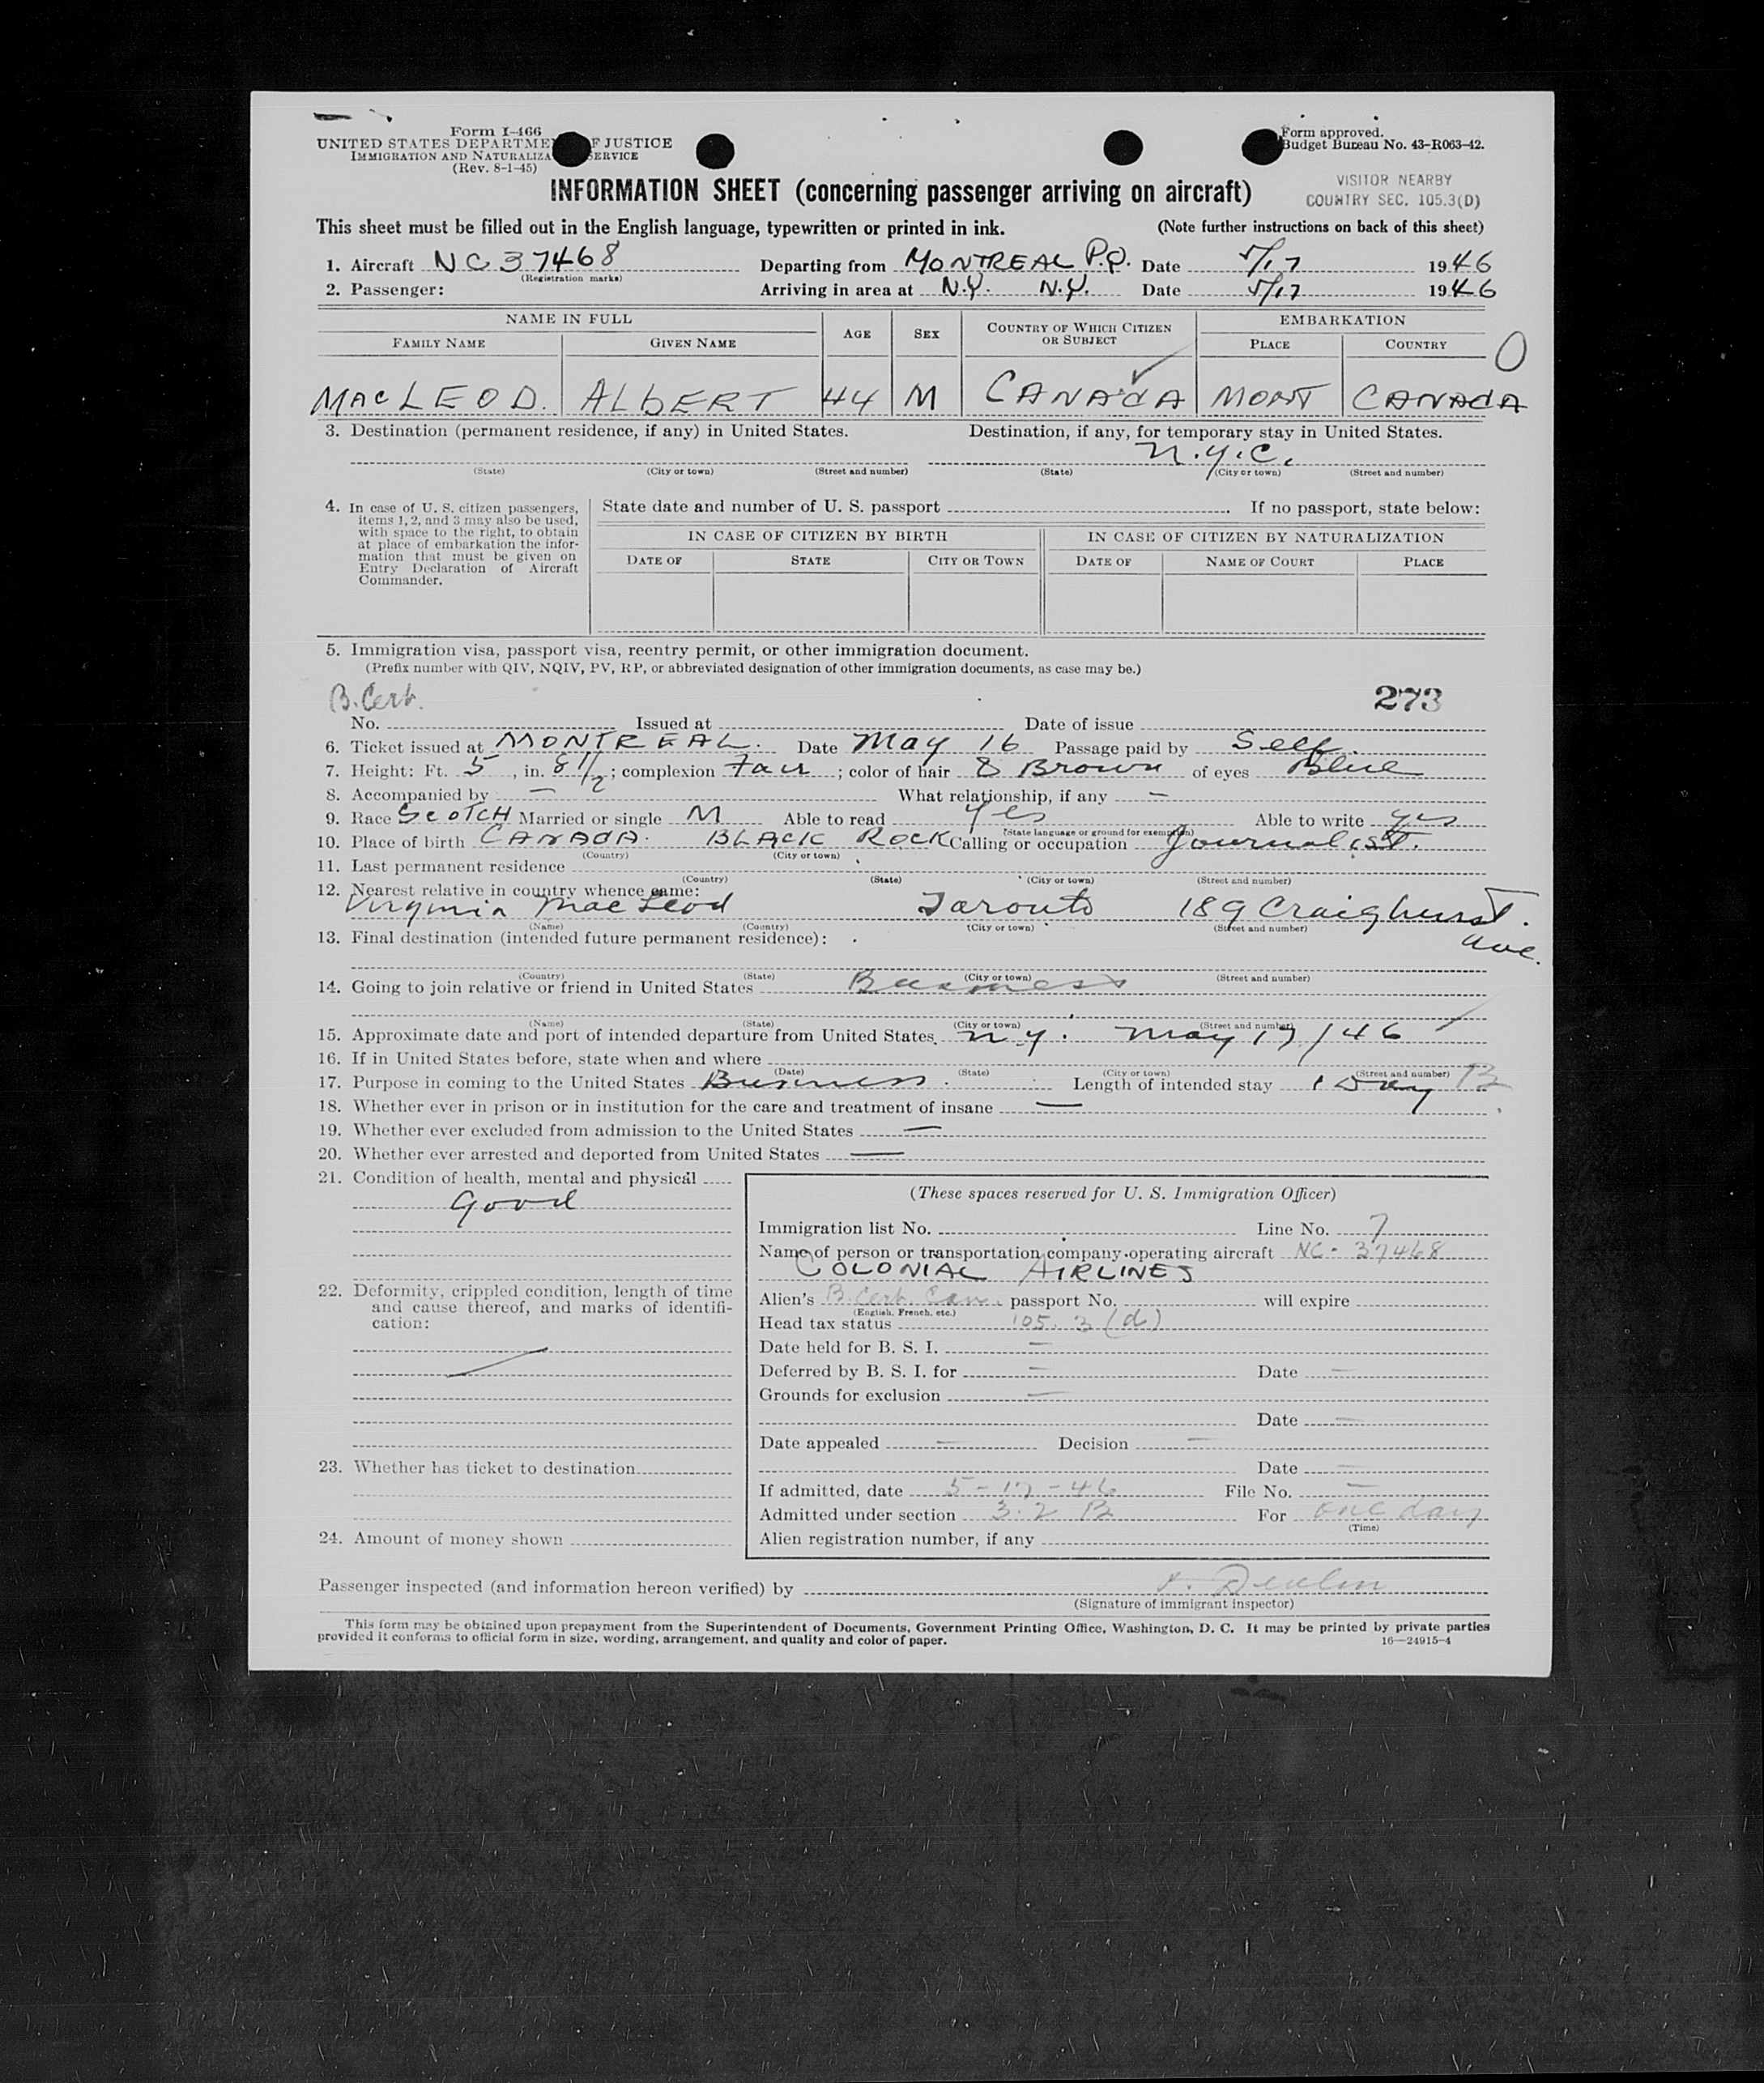 Form I-466
UNITED STATES DEPARTME F JUSTICE
IMMIGRATION AND NATURALIZA SERVICE
(Rev. 8-1-45)
Form approved.
Budget Bureau No. 43-R063-42.
VISITOR NEARBY
COUNTRY SEC. 105.3(D)
INFORMATION SHEET (concerning passenger arriving on aircraft)
This sheet must be filled out in the English language, typewritten or printed in ink. (Note further instructions on back of this sheet)
1. Aircraft NC 37468 Departing from MONTREAL P.Q. Date 5/17 1946
(Registration marks)
2. Passenger: Arriving in area at N.Y. N.Y. Date 5/17 1946
NAME IN FULL AGE SEX COUNTRY OF WHICH CITIZEN OR SUBJECT EMBARKATION
FAMILY NAME GIVEN NAME PLACE COUNTRY
MacLEOD. ALbERT 44 M CANAdA MONT CANAdA
3. Destination (permanent residence, if any) in United States. Destination, if any, for temporary stay in United States.
N.Y.C.
(State) (City or town) (Street and number) (State) (City or town) (Street and number)
4. In case of U. S. citizen passengers, items 1, 2, and 3 may also be used, with space to the right, to obtain at place of embarkation the information that must be given on Entry Declaration of Aircraft Commander.
State date and number of U. S. passport If no passport, state below:
IN CASE OF CITIZEN BY BIRTH IN CASE OF CITIZEN BY NATURALIZATION
DATE OF STATE CITY OR TOWN DATE OF NAME OF COURT PLACE
5. Immigration visa, passport visa, reentry permit, or other immigration document.
(Prefix number with QIV, NQIV, PV, RP, or abbreviated designation of other immigration documents, as case may be.)
B. Cert. 273
No. Issued at Date of issue
6. Ticket issued at MONTREAL. Date May 16 Passage paid by Self.
7. Height: Ft. 5, in. 8 1/2; complexion Fair; color of hair Brown of eyes Blue
8. Accompanied by — What relationship, if any —
9. Race SCOTCH Married or single M Able to read Yes Able to write Yes
(State language or ground for exemption)
10. Place of birth CANADA. BLACK ROCK Calling or occupation Journalist.
(Country) (City or town)
11. Last permanent residence
(Country) (State) (City or town) (Street and number)
12. Nearest relative in country whence came:
Virginia MacLeod Toronto 189 Craighurst Ave.
(Name) (Country) (City or town) (Street and number)
13. Final destination (intended future permanent residence):
(Country) (State) (City or town) (Street and number)
14. Going to join relative or friend in United States Business
(Name) (State) (City or town) (Street and number)
15. Approximate date and port of intended departure from United States. N.Y. May 17/46
16. If in United States before, state when and where
(Date) (State) (City or town) (Street and number)
17. Purpose in coming to the United States Business. Length of intended stay 1 Day B
18. Whether ever in prison or in institution for the care and treatment of insane —
19. Whether ever excluded from admission to the United States —
20. Whether ever arrested and deported from United States —
21. Condition of health, mental and physical
Good
22. Deformity, crippled condition, length of time and cause thereof, and marks of identification:
23. Whether has ticket to destination
24. Amount of money shown
(These spaces reserved for U. S. Immigration Officer)
Immigration list No. Line No. 7
Name of person or transportation company operating aircraft NC-37468
COLONIAL AIRLINES
Alien's B. Cert. Can. passport No. will expire
(English, French, etc.)
Head tax status 105.3(d)
Date held for B. S. I. —
Deferred by B. S. I. for — Date —
Grounds for exclusion —
Date —
Date appealed — Decision —
Date —
If admitted, date 5-17-46 File No. —
Admitted under section 3.2 B For one day
(Time)
Alien registration number, if any
Passenger inspected (and information hereon verified) by
(Signature of immigrant inspector)
This form may be obtained upon prepayment from the Superintendent of Documents, Government Printing Office, Washington, D. C. It may be printed by private parties
provided it conforms to official form in size, wording, arrangement, and quality and color of paper. 16—24915-4